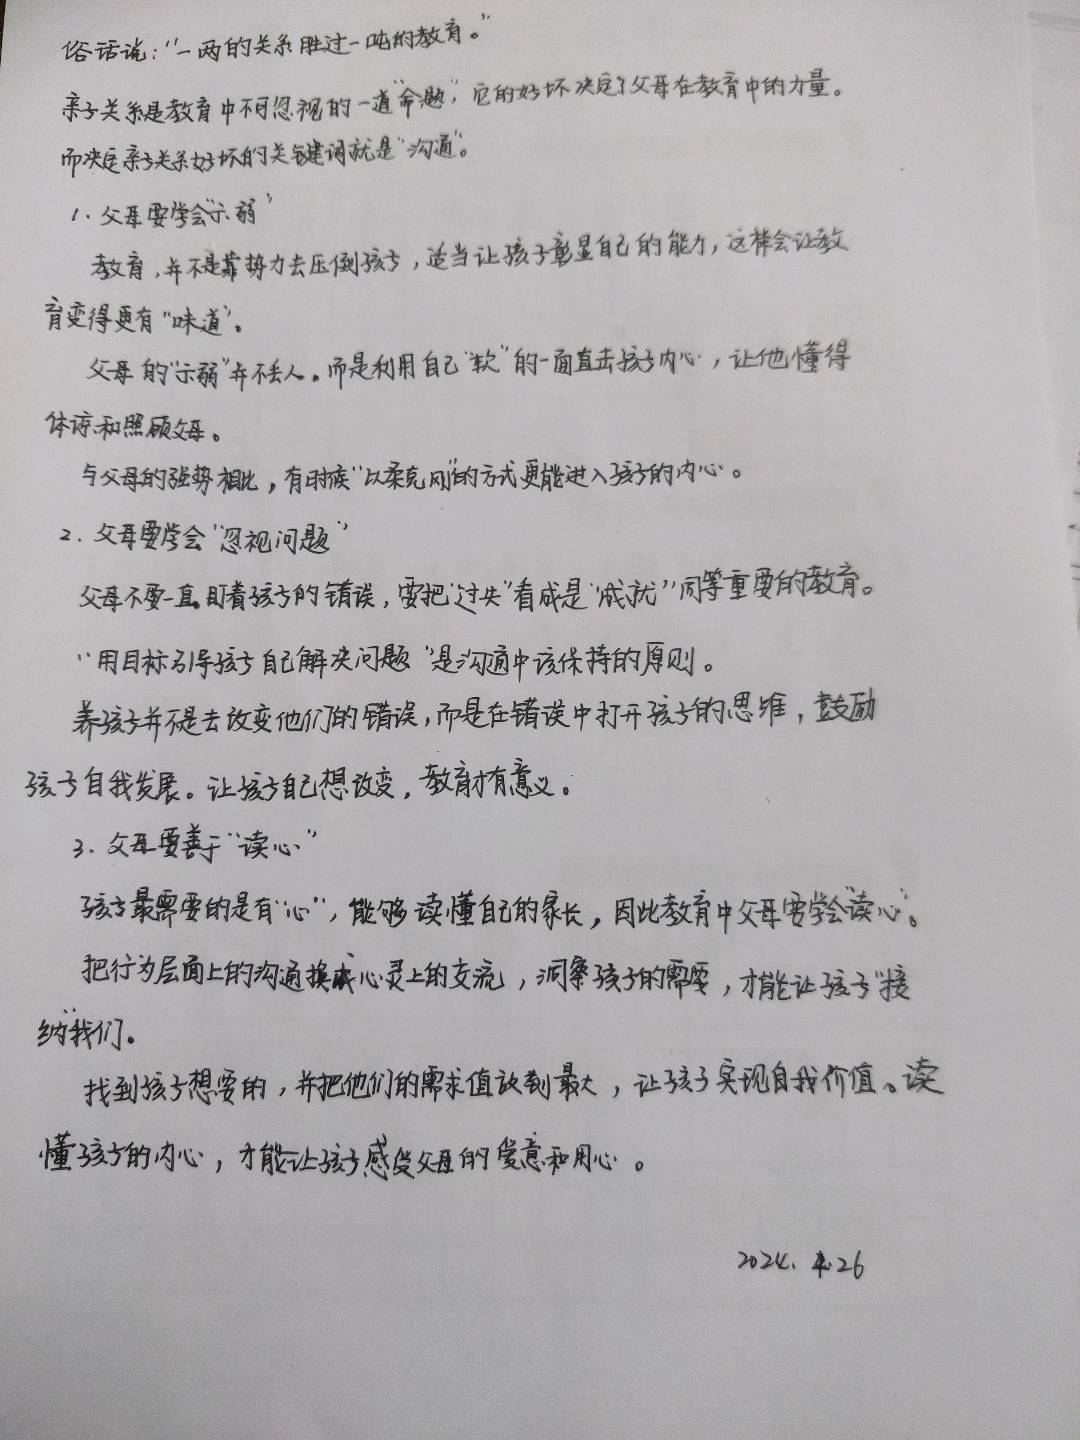 俗话说：“一两的关系胜过一吨的教育。”
亲子关系是教育中不可忽视的一道“命题”，它的好坏决定了父母在教育中的力量。
而决定亲子关系好坏的关键词就是“沟通”。
1. 父母要学会“示弱”
教育，并不是靠势力去压倒孩子，适当让孩子彰显自己的能力，这样会让教
育变得更有“味道”。
父母的“示弱”并不丢人。而是利用自己“软”的一面直击孩子内心，让他懂得
体谅和照顾父母。
与父母的强势相比，有时候“以柔克刚”的方式更能进入孩子的内心。
2. 父母要学会“忽视问题”
父母不要一直盯着孩子的错误，要把“过失”看成是“成就”同等重要的教育。
“用目标引导孩子自己解决问题”是沟通中该保持的原则。
养孩子并不是去改变他们的错误，而是在错误中打开孩子的思维，鼓励
孩子自我发展。让孩子自己想改变，教育才有意义。
3. 父母要善于“读心”
孩子最需要的是有“心”，能够读懂自己的家长，因此教育中父母要学会“读心”。
把行为层面上的沟通换成心灵上的交流，洞察孩子的需要，才能让孩子“接
纳”我们。
找到孩子想要的，并把他们的需求值放到最大，让孩子实现自我价值。读
懂孩子的内心，才能让孩子感受父母的爱意和用心。
2024. 4.26